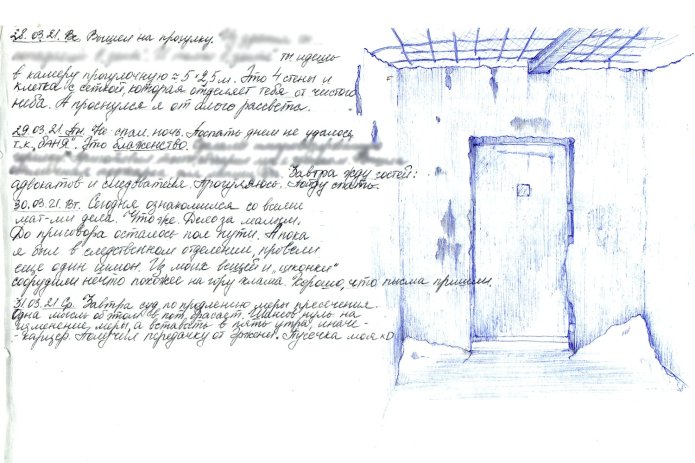 28.03.21. Вс. Вышел на прогулку.
ты идешь
в камеру прогулочную ≈ 5×2,5м. Это 4 стены и
клетка с сеткой, которая отделяет тебя от чистого
неба. А проснулся я от алого рассвета.
29.03.21. Пн. Не спал ночь. Поспать днем не удалось
т.к. „баня“. Это блаженство.
Завтра жду гостей:
адвокатов и следователя. Прогуляюсь. Пойду спать.
30.03.21. Вт. Сегодня ознакомился со всеми
мат-ми дела. Что же. Дело за малым.
До приговора осталось пол пути. А пока
я был в следственном отделении, провели
еще один шмон. Из моих вещей и „иконки“
соорудили нечто похожее на гору хлама. Хорошо, что письма пришли.
31.03.21 Ср. Завтра суд по продлению меры пресечения.
Одна мысль об этом в пот бросает. Шансов нуль на
изменение меры, а вставать в пять утра, иначе -
- карцер. Получил передачку от Фжени. Пусечка моя